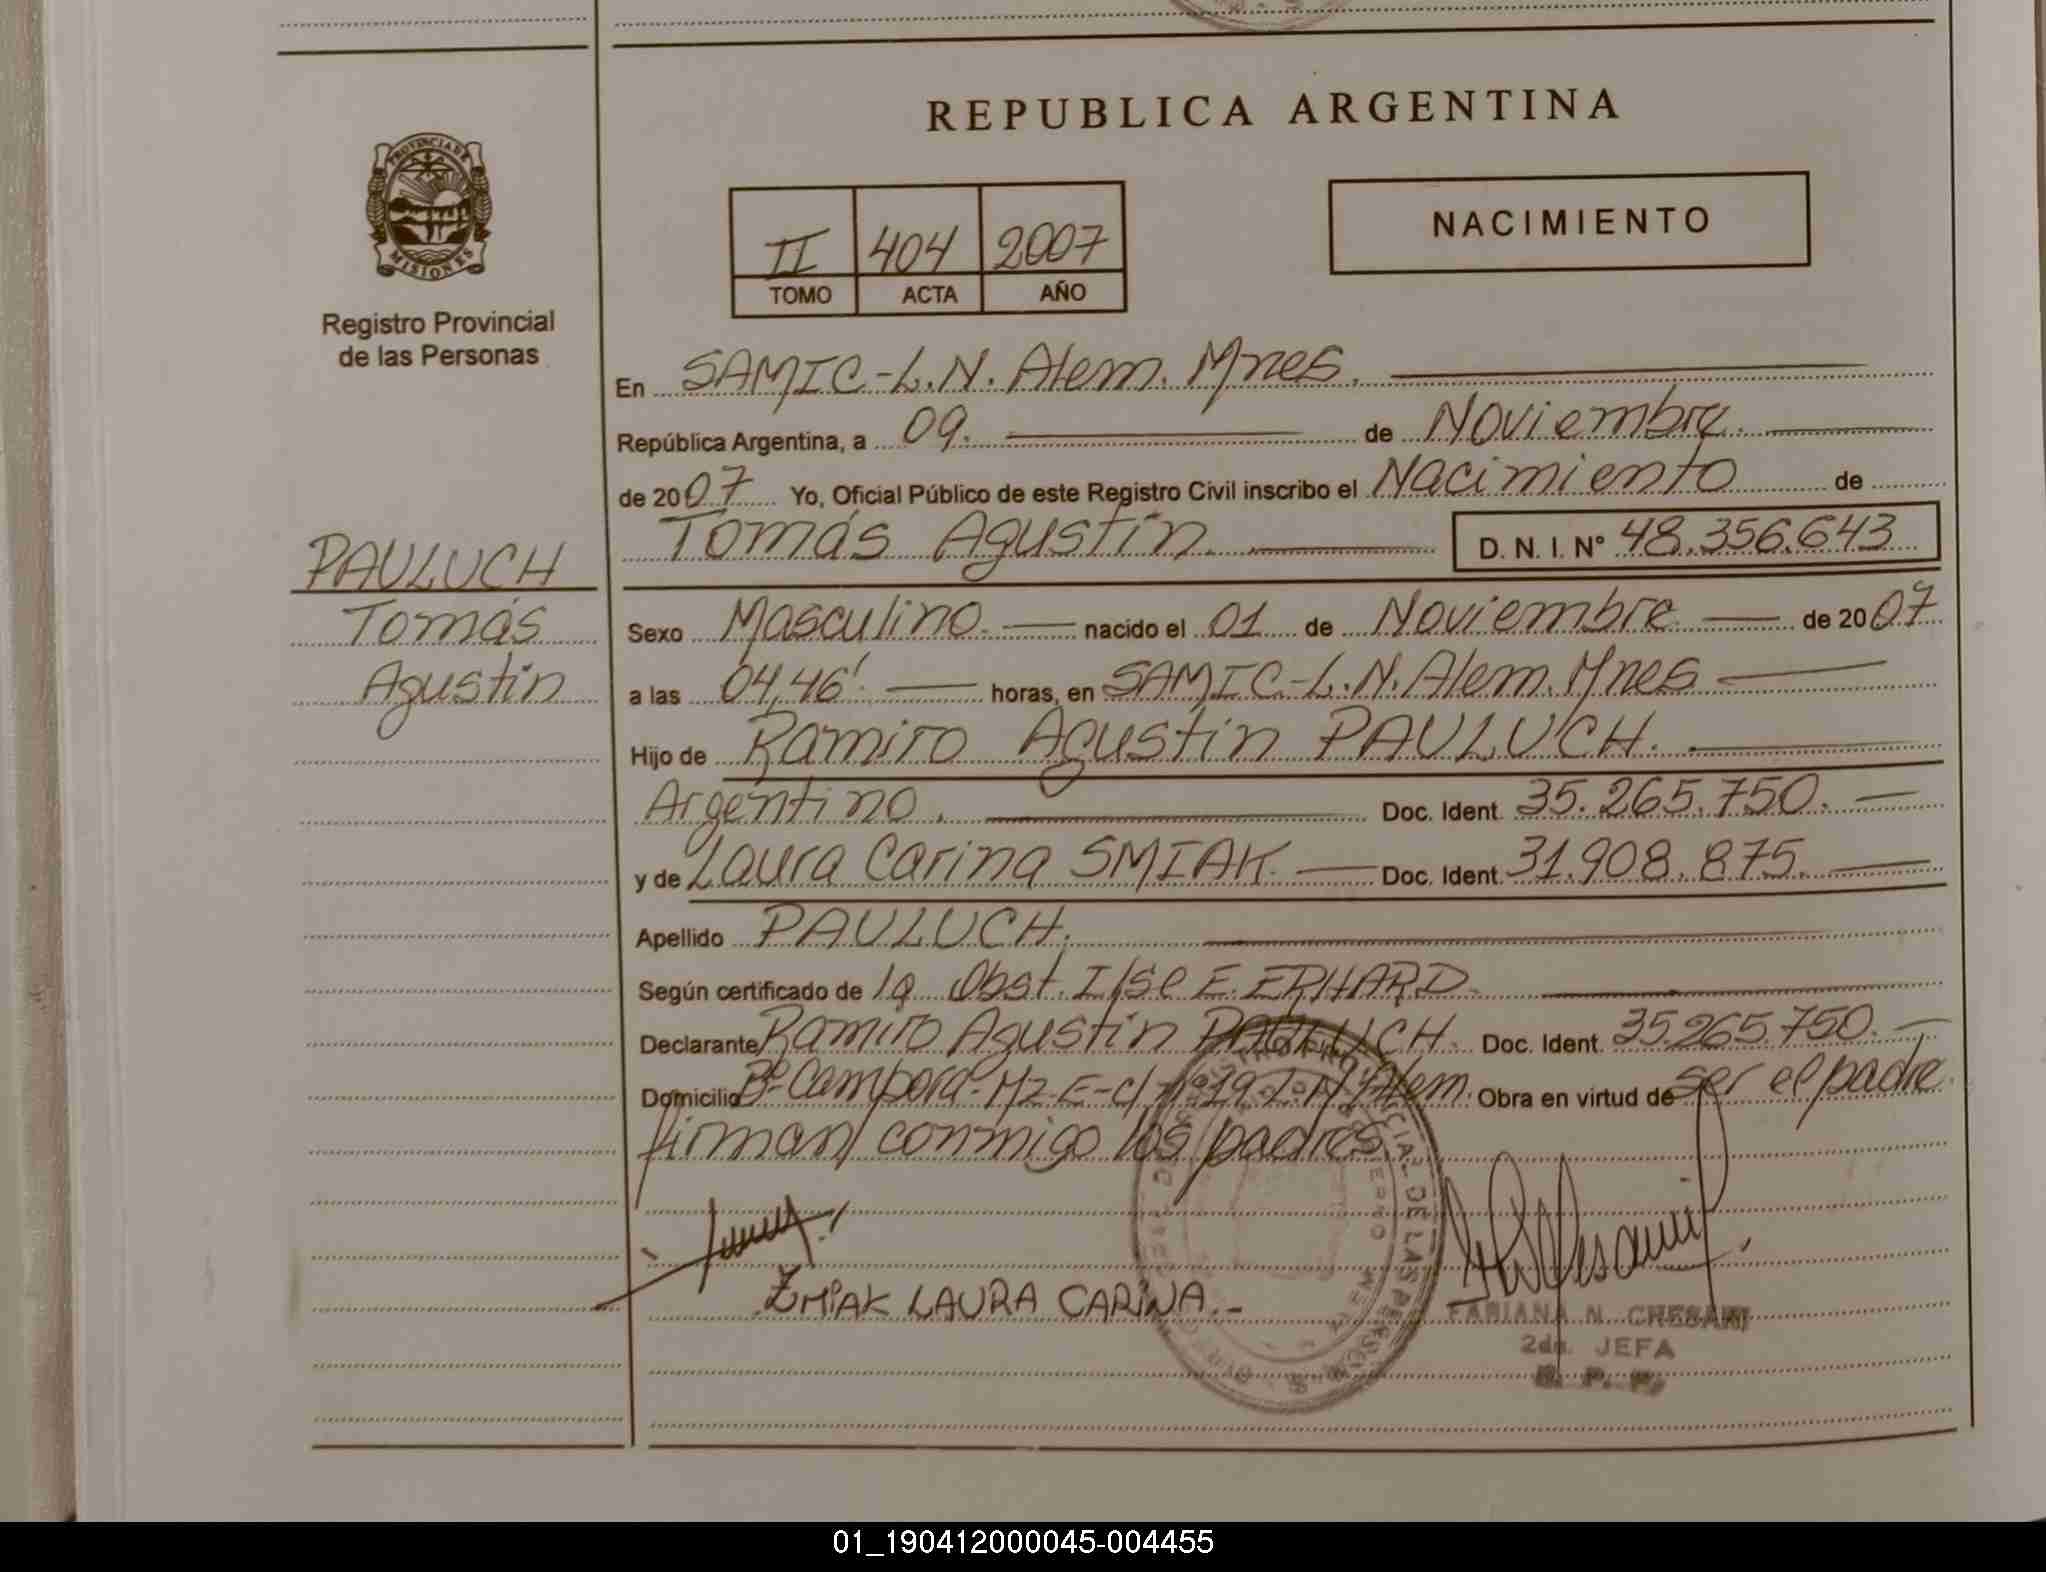 REPUBLICA ARGENTINA
PROVINCIA DE
MISIONES
Registro Provincial
de las Personas
II 404 2007
TOMO ACTA AÑO
NACIMIENTO
En SAMIC-L.N. Alem. Mnes.
República Argentina, a 09. de Noviembre.
de 2007 Yo, Oficial Público de este Registro Civil inscribo el Nacimiento de
Tomás Agustín. D. N. I. Nº 48.356.643
PAULUCH
Tomás
Agustín
Sexo Masculino. nacido el 01 de Noviembre de 2007
a las 04,46'. horas, en SAMIC-L.N. Alem. Mnes
Hijo de Ramiro Agustín PAULUCH.
Argentino. Doc. Ident. 35.265.750.
y de Laura Carina SMIAK. Doc. Ident. 31.908.875.
Apellido PAULUCH.
Según certificado de la Obst. Ilse E. ERHARD.
Declarante Ramiro Agustín PAULUCH. Doc. Ident. 35.265.750.
Domicilio Bº Campora-Mz-E-c/ nº19-L.N. Alem. Obra en virtud de ser el padre.
firman conmigo los padres
ZMIAK LAURA CARINA.-
FABIANA N. CHESANI
2da. JEFA
R. P. P.
01_190412000045-004455